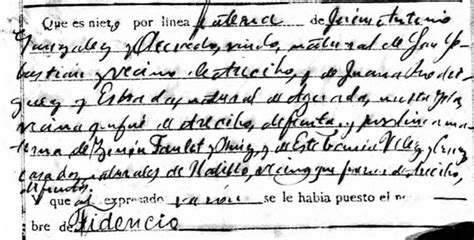 Que es nieto por línea paterna de Jesús Antonio
González y Acevedo, viudo, natural de San Se-
bastián y vecino de Arecibo, y de Juana Rodrí-
guez y Estrada, natural de Aguada,
vecina que fué de Arecibo, difunta, y por línea ma-
terna de Ramón y de Estefanía Vélez y Cruz
casados, naturales de Hatillo, vecinos que fueron de Arecibo,
difuntos.
Y que al expresado varón se le había puesto el n
bre de Fidencio